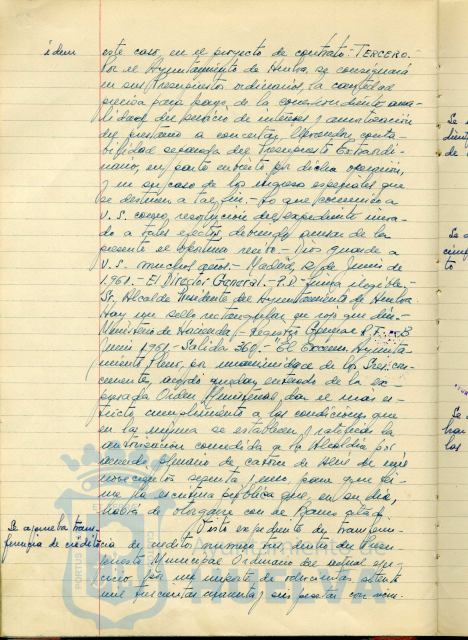 idem
este caso, en el proyecto de contrato.- TERCERO.-
Por el Ayuntamiento de Huelva, se consignará
en sus Presupuestos ordinarios, la cantidad
precisa para pago de la correspondiente anua-
lidad del servicio de intereses y amortización
del préstamo a concertar, llevándose conta-
bilidad separada del Presupuesto Extraordi-
nario, en parte cubierto por dicha operación,
y en su caso de los ingresos especiales que
se destinen a tal fin.- Lo que comunico a
V.S. como resolución del expediente incoa-
do a tales efectos debiendo acusar de la
presente el oportuno recibo.- Dios guarde a
V.S. muchos años.- Madrid, de Junio de
1961.- El Director General.- P.D. firma ilegible.-
Sr. Alcalde Presidente del Ayuntamiento de Huelva.
Hay un sello rectangular en rojo que dice:
Ministerio de Hacienda.- Registro General 8
Junio 1961.- Salida 360.- "El Excmo. Ayunta-
miento Pleno, por unanimidad de los Sres. con-
currentes, acordó quedar enterado de la ex-
presada Orden Ministerial, dar el más es-
tricto cumplimiento a las condiciones que
en la misma se establecen y ratificar la
autorización concedida a la Alcaldía por
acuerdo plenario de catorce de Abril de mil
novecientos sesenta y uno, para que fir-
me la escritura pública que, en su día,
habrá de otorgarse con el Banco citado.
Se aprueba trans-
ferencia de crédito
Visto expediente de transferen-
cia de crédito número dentro del Presu-
puesto Municipal Ordinario del actual ejer-
cicio por un importe de setenta
mil cuarenta y seis pesetas con